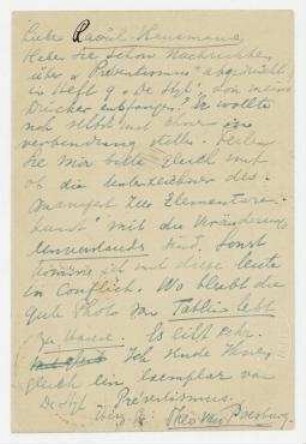 Lieber Raoul Hausmann
Haben Sie schon Nachrichten
über „Présentismus" abgedruckt
in Heft 9 „De Stijl" von meinem
Drucker empfangen? Sie wollte
mich selbst mit Ihnen in
verbindung stellen. Teilen
Sie mir bitte gleich mit
ob die Unterzeichner des
„Manifest zur Elementaren
Kunst" mit die Veränderung
einverstanden sind. Sonst
komme ich mit diese leute
in Conflict. Wo bleibt die
gute Photo von Tatlin lebt
zu Hause. Es eilt sehr.
Ich sende Ihnen
gleich ein Exemplar von
De Stijl Présentismus.
Ihr Theo van Doesburg